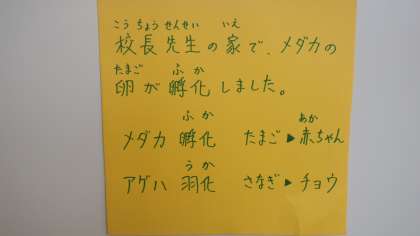 こうちょうせんせい いえ
校長先生の家で、メダカの
たまご ふか
卵が孵化しました。
ふか あか
メダカ 孵化 たまご▶赤ちゃん
うか
アゲハ 羽化 さなぎ▶チョウ